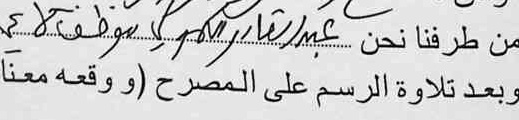 من طرفنا نحن عبد القادر موظف
وبعد تلاوة الرسم على المصرح (و وقعه معنا